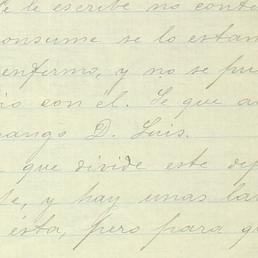 se le escribe no conte
consume se lo estam
enfermo, y no se pu
con el. Se que a
D. Luis.
que divide este de
te, y hay unas la
ésta, pero para q